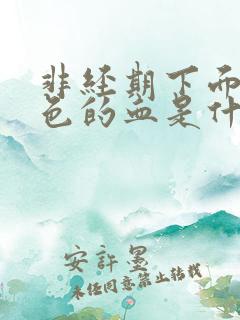 非经期下面
色的血是什
安许墨
未经同意禁止转载